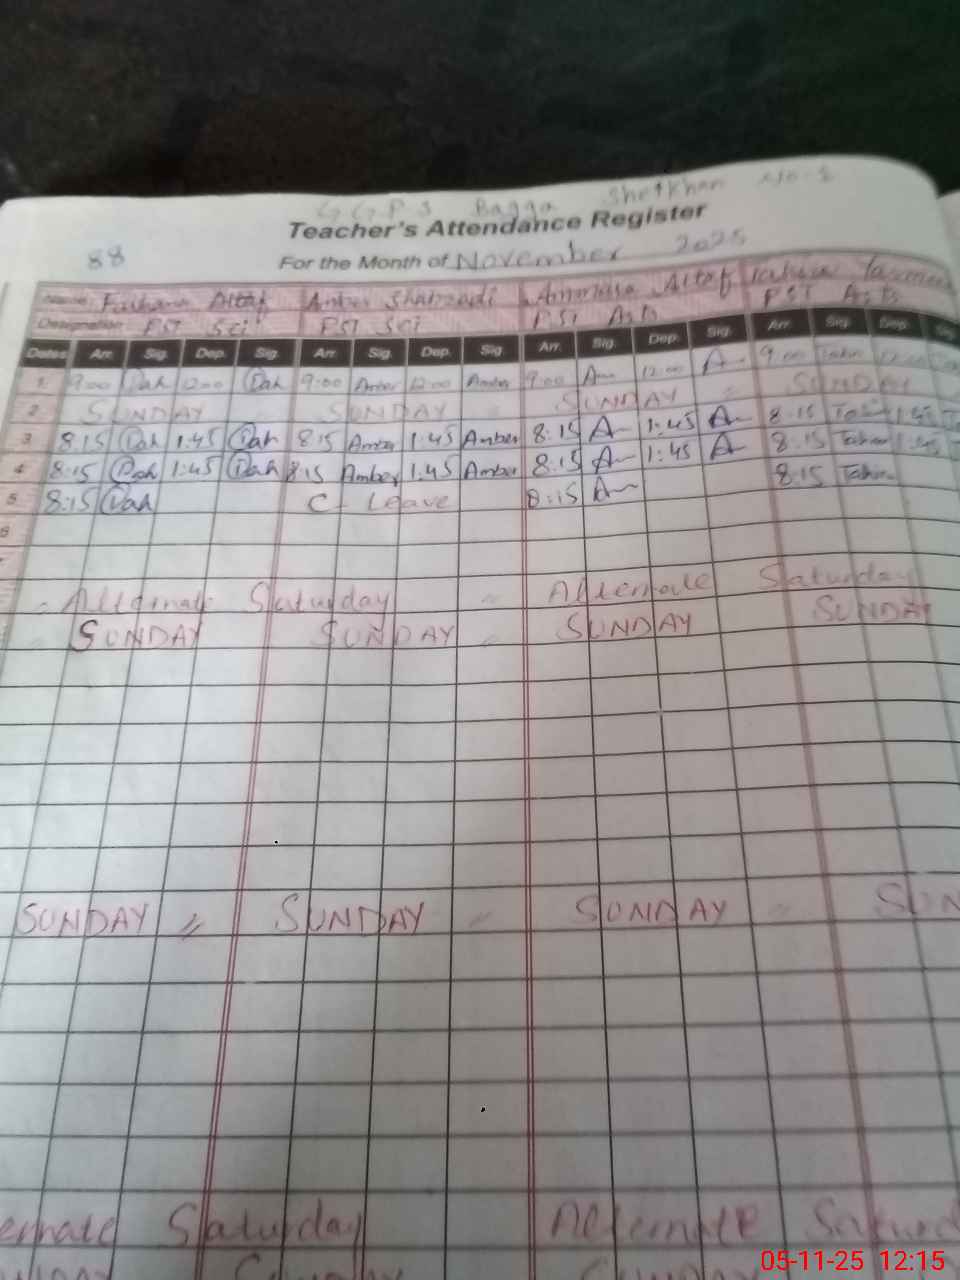 G.G.P.S Bagga Sherkhan No-1
Teacher's Attendance Register
88 For the Month of November 2025
Name: Farhana Altaf Anber Shahzadi Altaf Tahira
Designation PST Sci PST Sci PST Arts PST Arts
Dates Arr. Sig. Dep. Sig. Arr. Sig. Dep. Sig. Arr. Sig. Dep. Sig. Arr. Sig. Dep. Sig
1 9:00 12:00 9:00 Amber 12:00 Amber 9:00 12:00 9:00 12:00
2 SUNDAY SUNDAY " SUNDAY " SUNDAY
3 8:15 1:45 8:15 Amber 1:45 Amber 8:15 1:45 8:15 1:45
4 8:15 1:45 8:15 Amber 1:45 Amber 8:15 1:45 8:15 1:45
5 8:15 C- Leave 8:15 8:15
6
Alternate Saturday " Alternate Saturday
SUNDAY SUNDAY " SUNDAY SUNDAY
SUNDAY " SUNDAY " SUNDAY " SUN
ernate Saturday Alternate Saturd
05-11-25 12:15